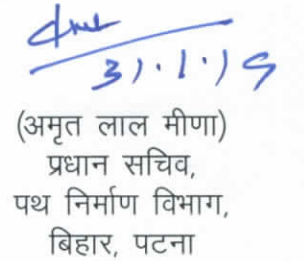 31.1.19
(अमृत लाल मीणा)
प्रधान सचिव,
पथ निर्माण विभाग,
बिहार, पटना